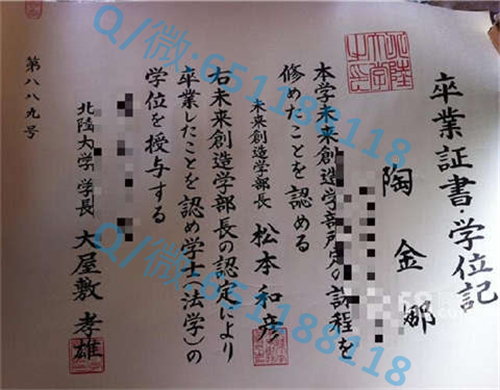 卒業証書・学位記
陶金
本学未来創造学部所定の課程を
修めたことを認める
未来創造学部長 松本和彦
右未来創造学部長の認定により
卒業したことを認め学士(法学)の
学位を授与する
北陸大学学長 大屋敷孝雄
第八八九号
Q/微:651188118
Q/微:651188118